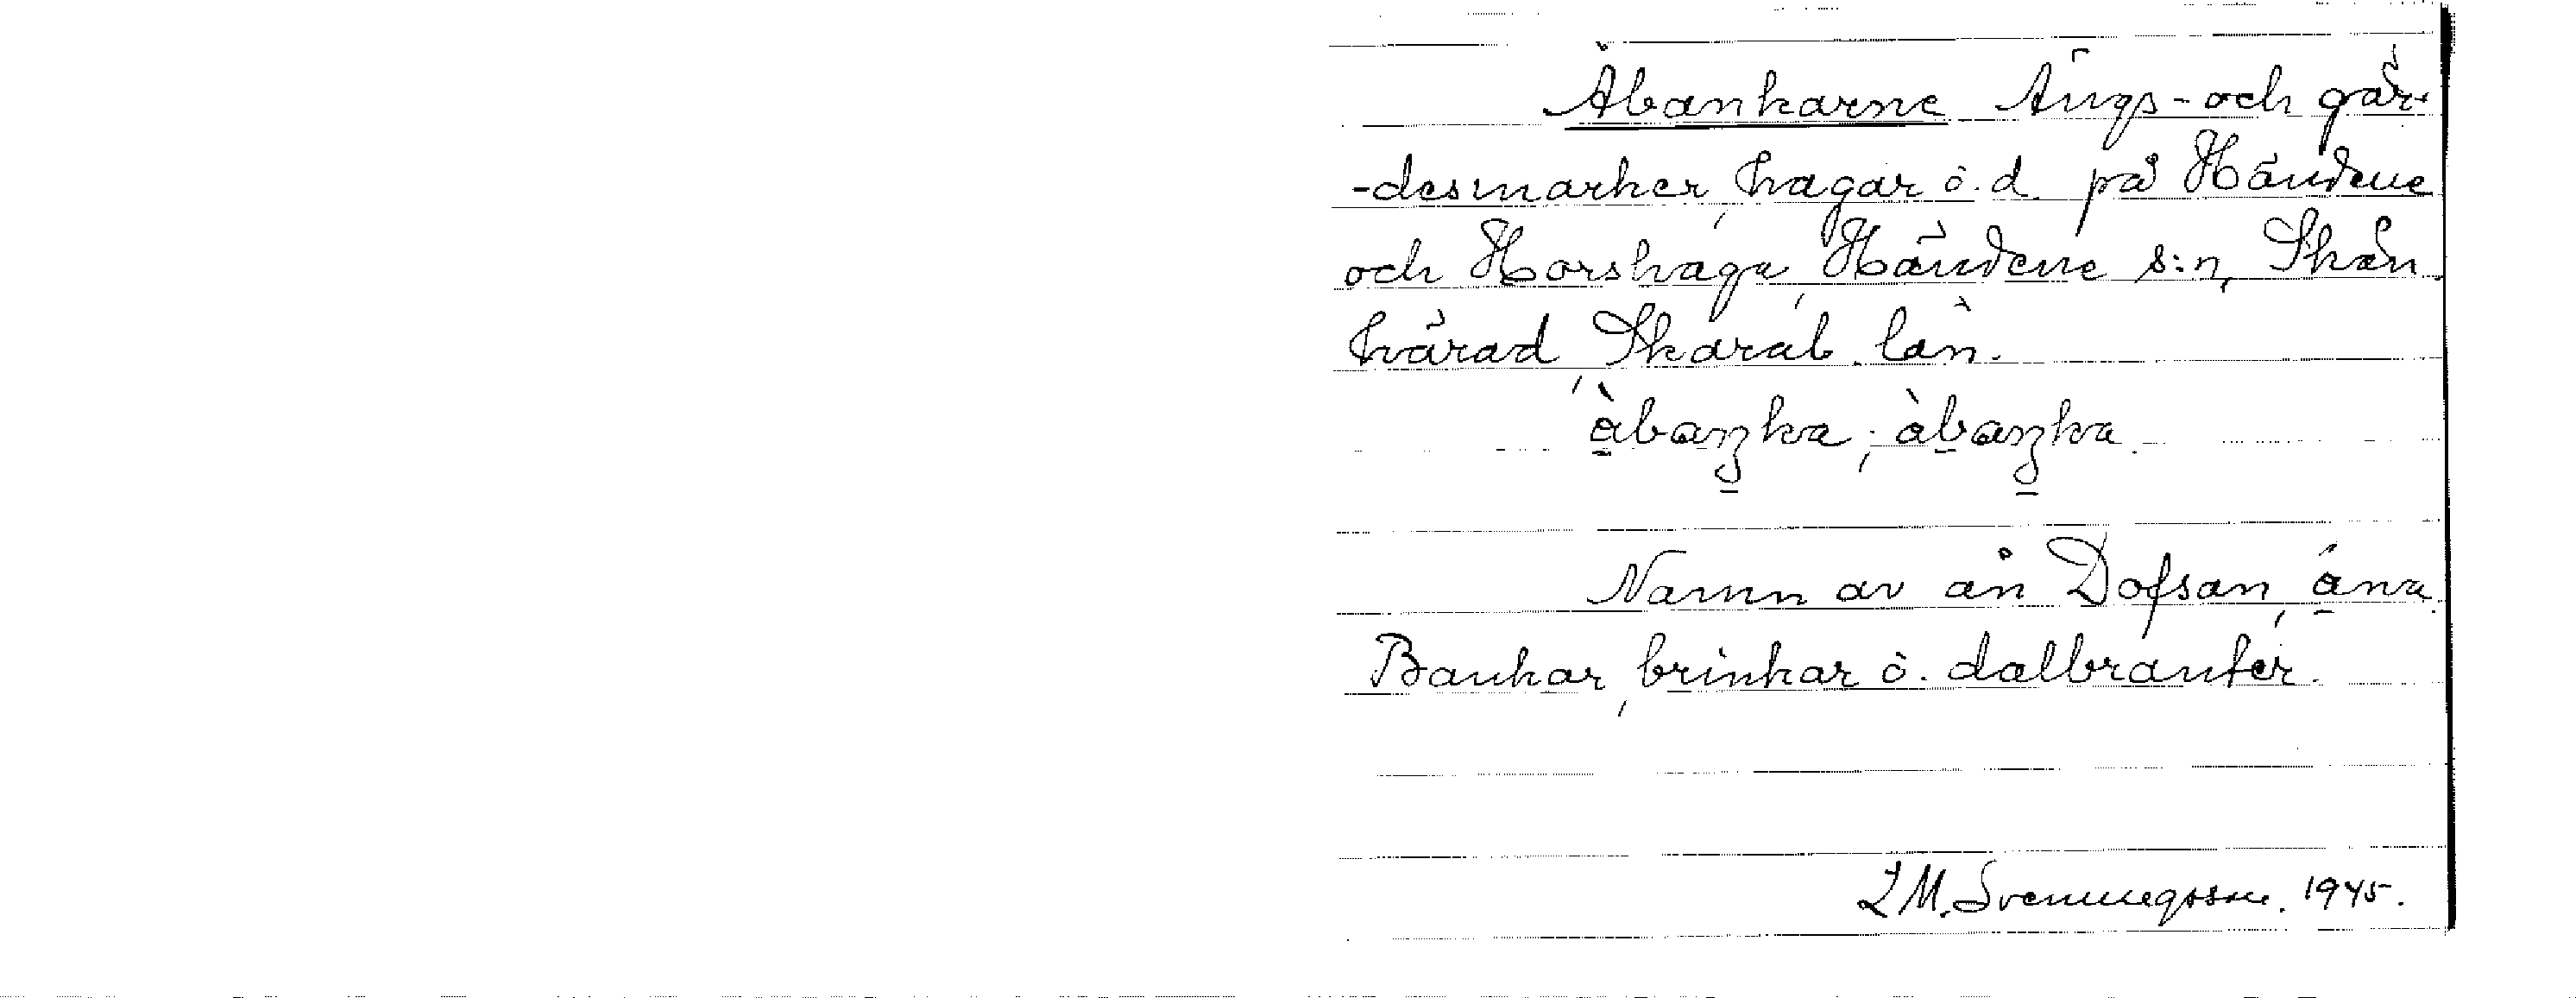 Åbankarne Ängs- och går-
-desmarker, hagar ö.d. på Händene
och Horshaga, Händene s:n, Skån.
härad, Skarab. län.
åbaŋka, åbaŋka.
Namn av ån Dofsan, åna
Bankar, brinkar ö. dalbranter.
L M. Svenungsson. 1945.